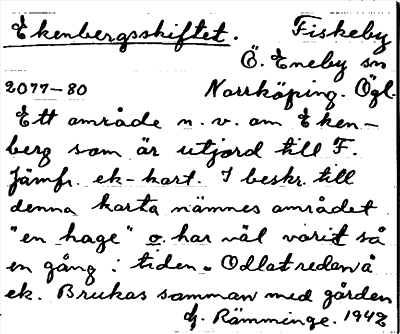 Ekenbergsskiftet. Fiskeby
Ö. Eneby sn
2077-80 Norrköping. Ögl.
Ett område n. v. om Eken-
berg som är utjord till F.
Jämfr. ek-kart. I beskr. till
denna karta nämnes området
"en hage" o. har väl varit så
en gång i tiden. Odlat redan å
ek. Brukas samman med gården
G. Rämminge. 1942